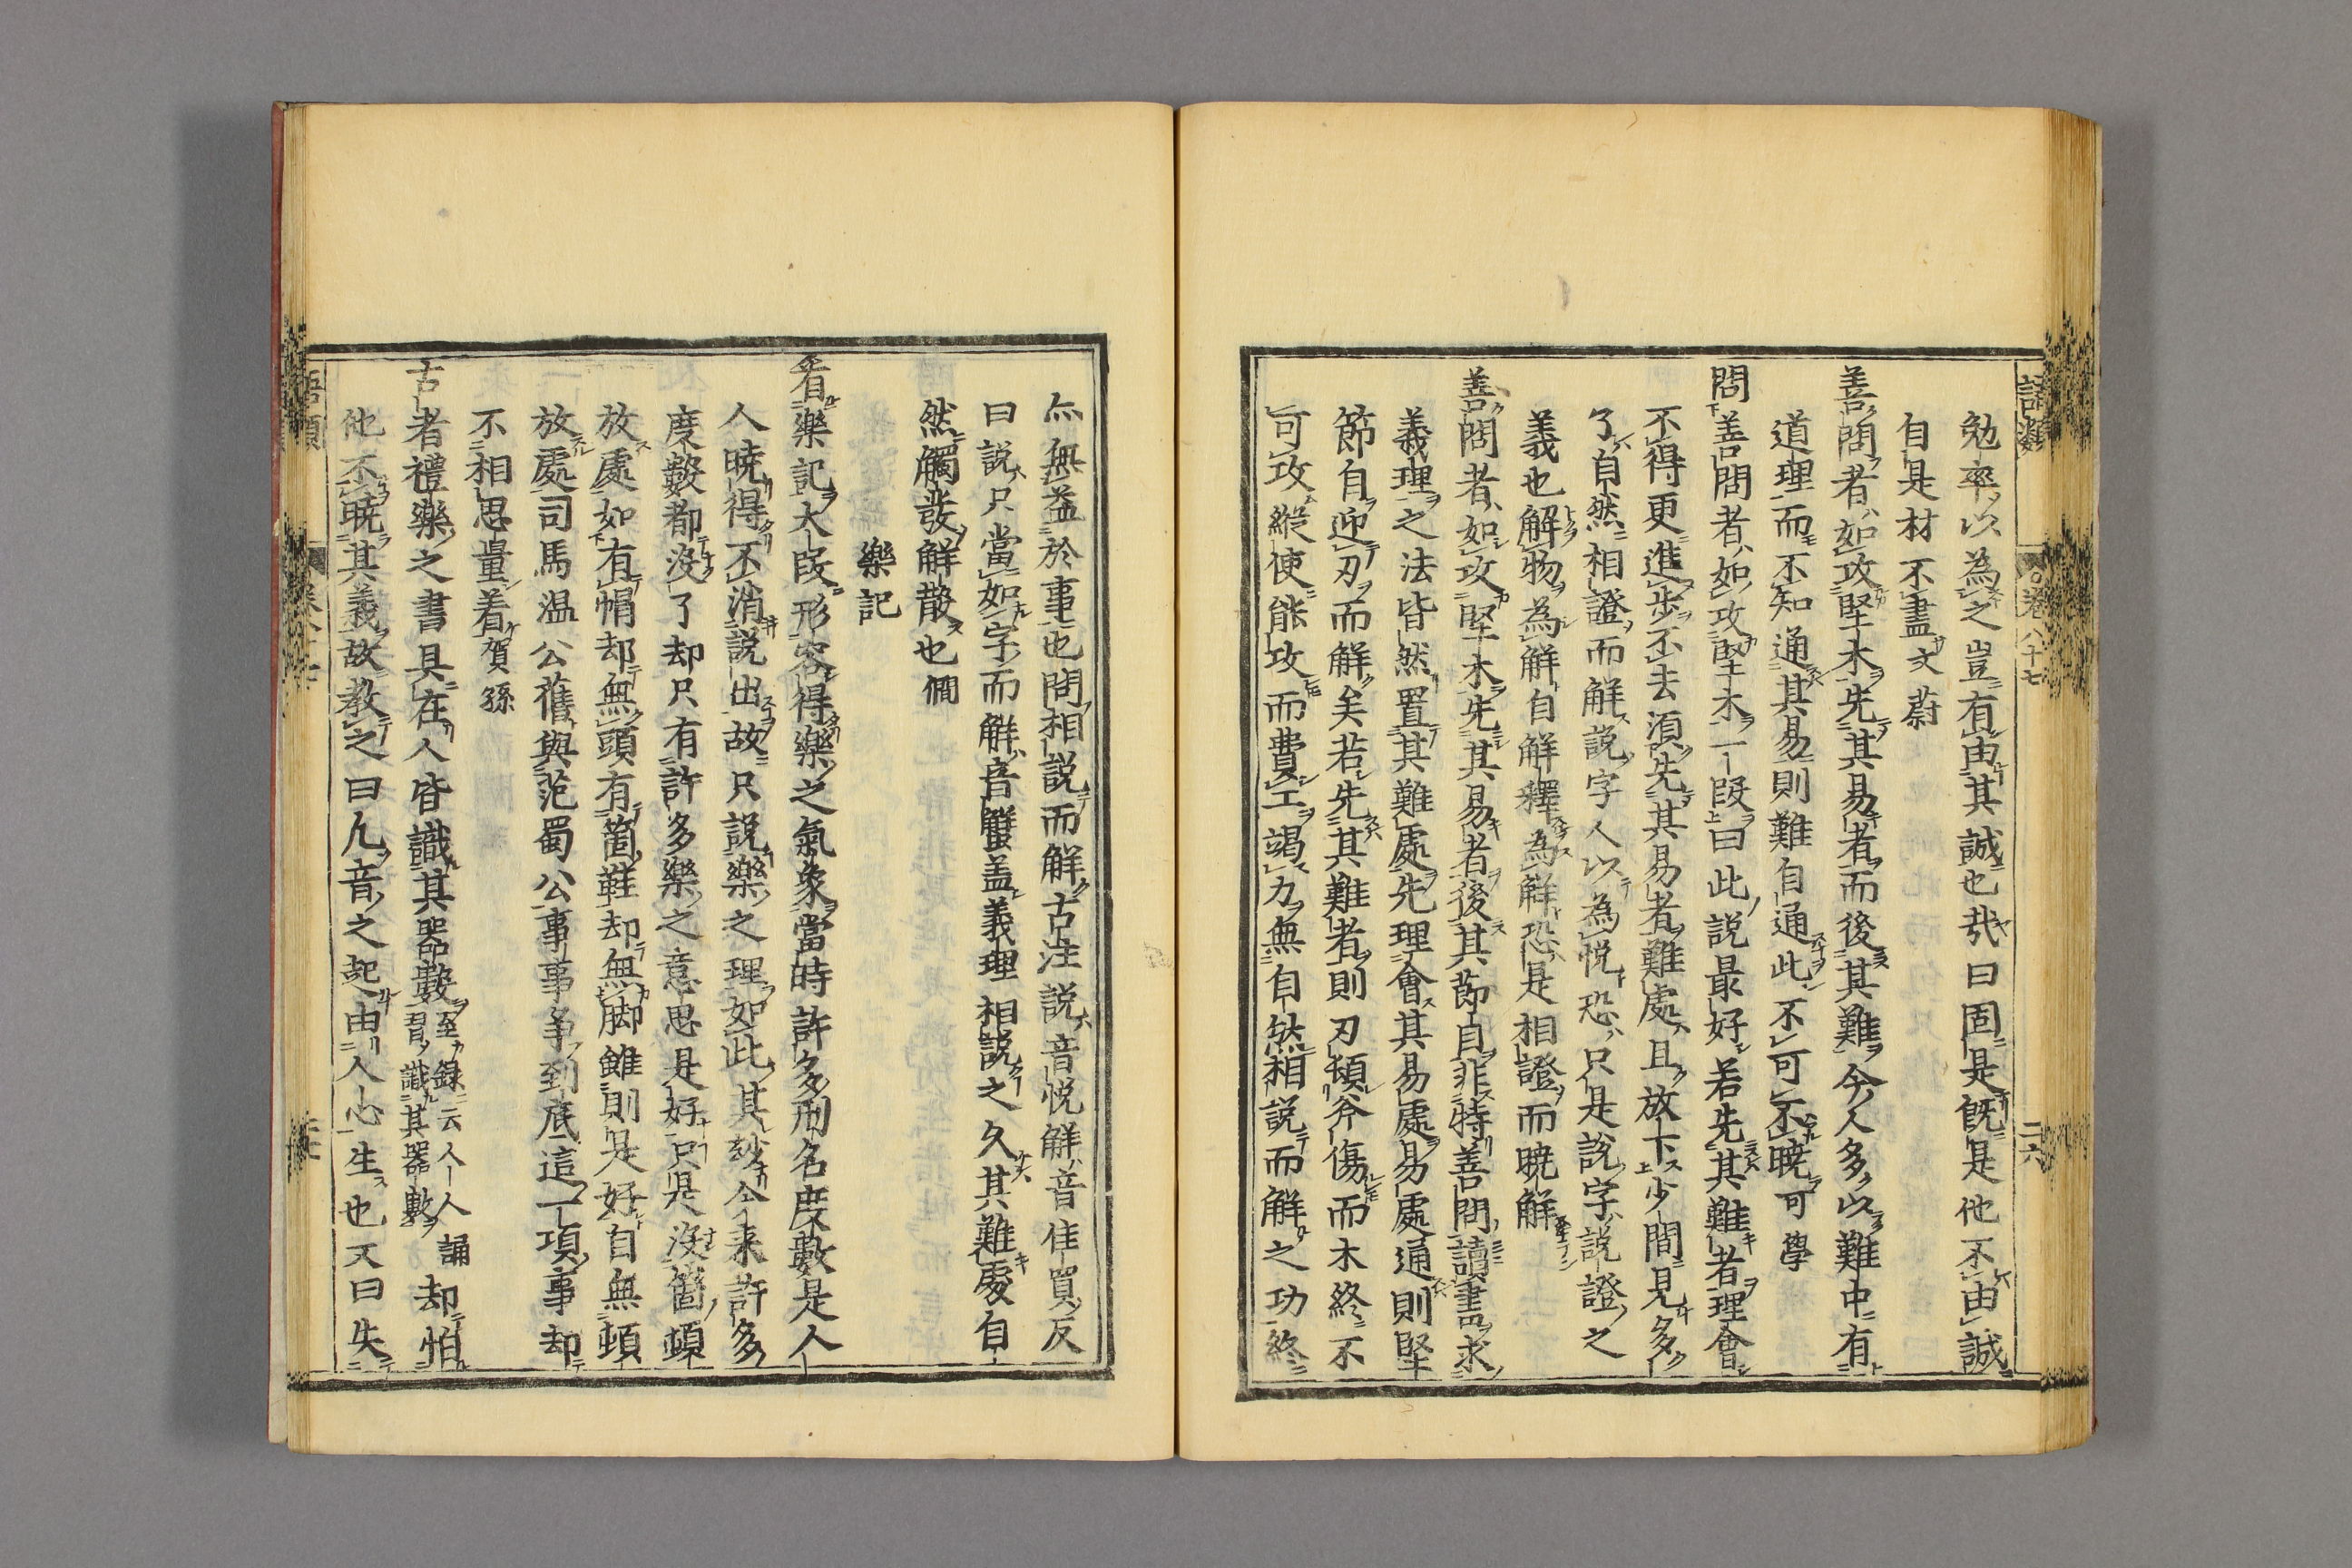 語類 卷八十七 二六
勉率以為之豈有由其誠也哉曰固是旣是他不由誠
自是材不盡文蔚
善問者如攻堅木先其易者而後其難今人多以難中有
道理而不知通其易則難自通此不可不曉可學
問善問者如攻堅木一段曰此說最好若先其難者理會
不得更進步不去須先其易者難處且放下少間見多
了自然相證而解說字人以為悅恐只是說字說證之
義也解物為解自解釋為解恐是相證而曉解
善問者如攻堅木先其易者後其節目非特善問讀書求
義理之法皆然置其難處先理會其易處易處通則堅
節自迎刃而解矣若先其難者則刃頓斧傷而木終不
可攻縱使能攻而費工竭力無自然相說而解之功終
亦無益於事也問相說而解古注說音悅解音佳買反
曰說只當如字而解音蟹盖義理相說之久其難處自
然觸發解散也僩
樂記
看樂記大段形容得樂之氣象當時許多刑名度數是人
人曉得不消說出故只說樂之理如此其妙今来許多
度數都沒了却只有許多樂之意思是好只是沒箇頓
放處如有帽却無頭有箇鞋却無脚雖則是好自無頓
放處司馬温公舊與范蜀公事事爭到底這一項事却
不相思量着賀孫
古者禮樂之書具在人皆識其器數至録云人人誦習識其器數却怕
他不曉其義故教之曰凡音之起由人心生也又曰失
語類